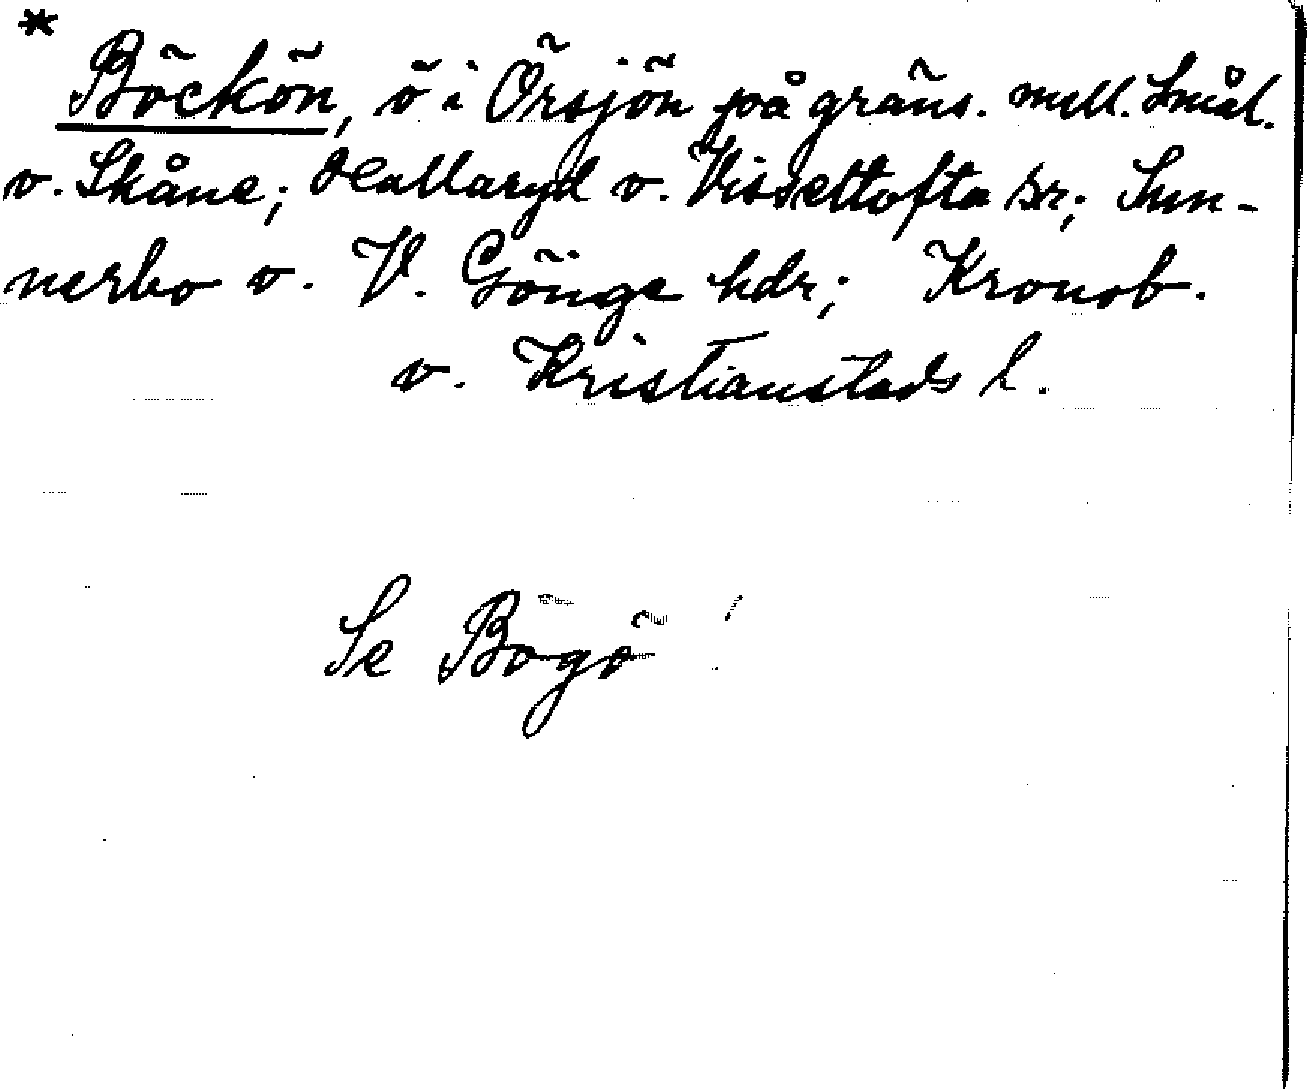 *
Böckön, ö i Örsjön på gräns. mell. Smål.
v. Skåne; Hallaryd v. Visseltofta sr; Sun-
nerbo v. V. Göinge hdr; Kronob.
v. Kristianstads l.
Se Bogö